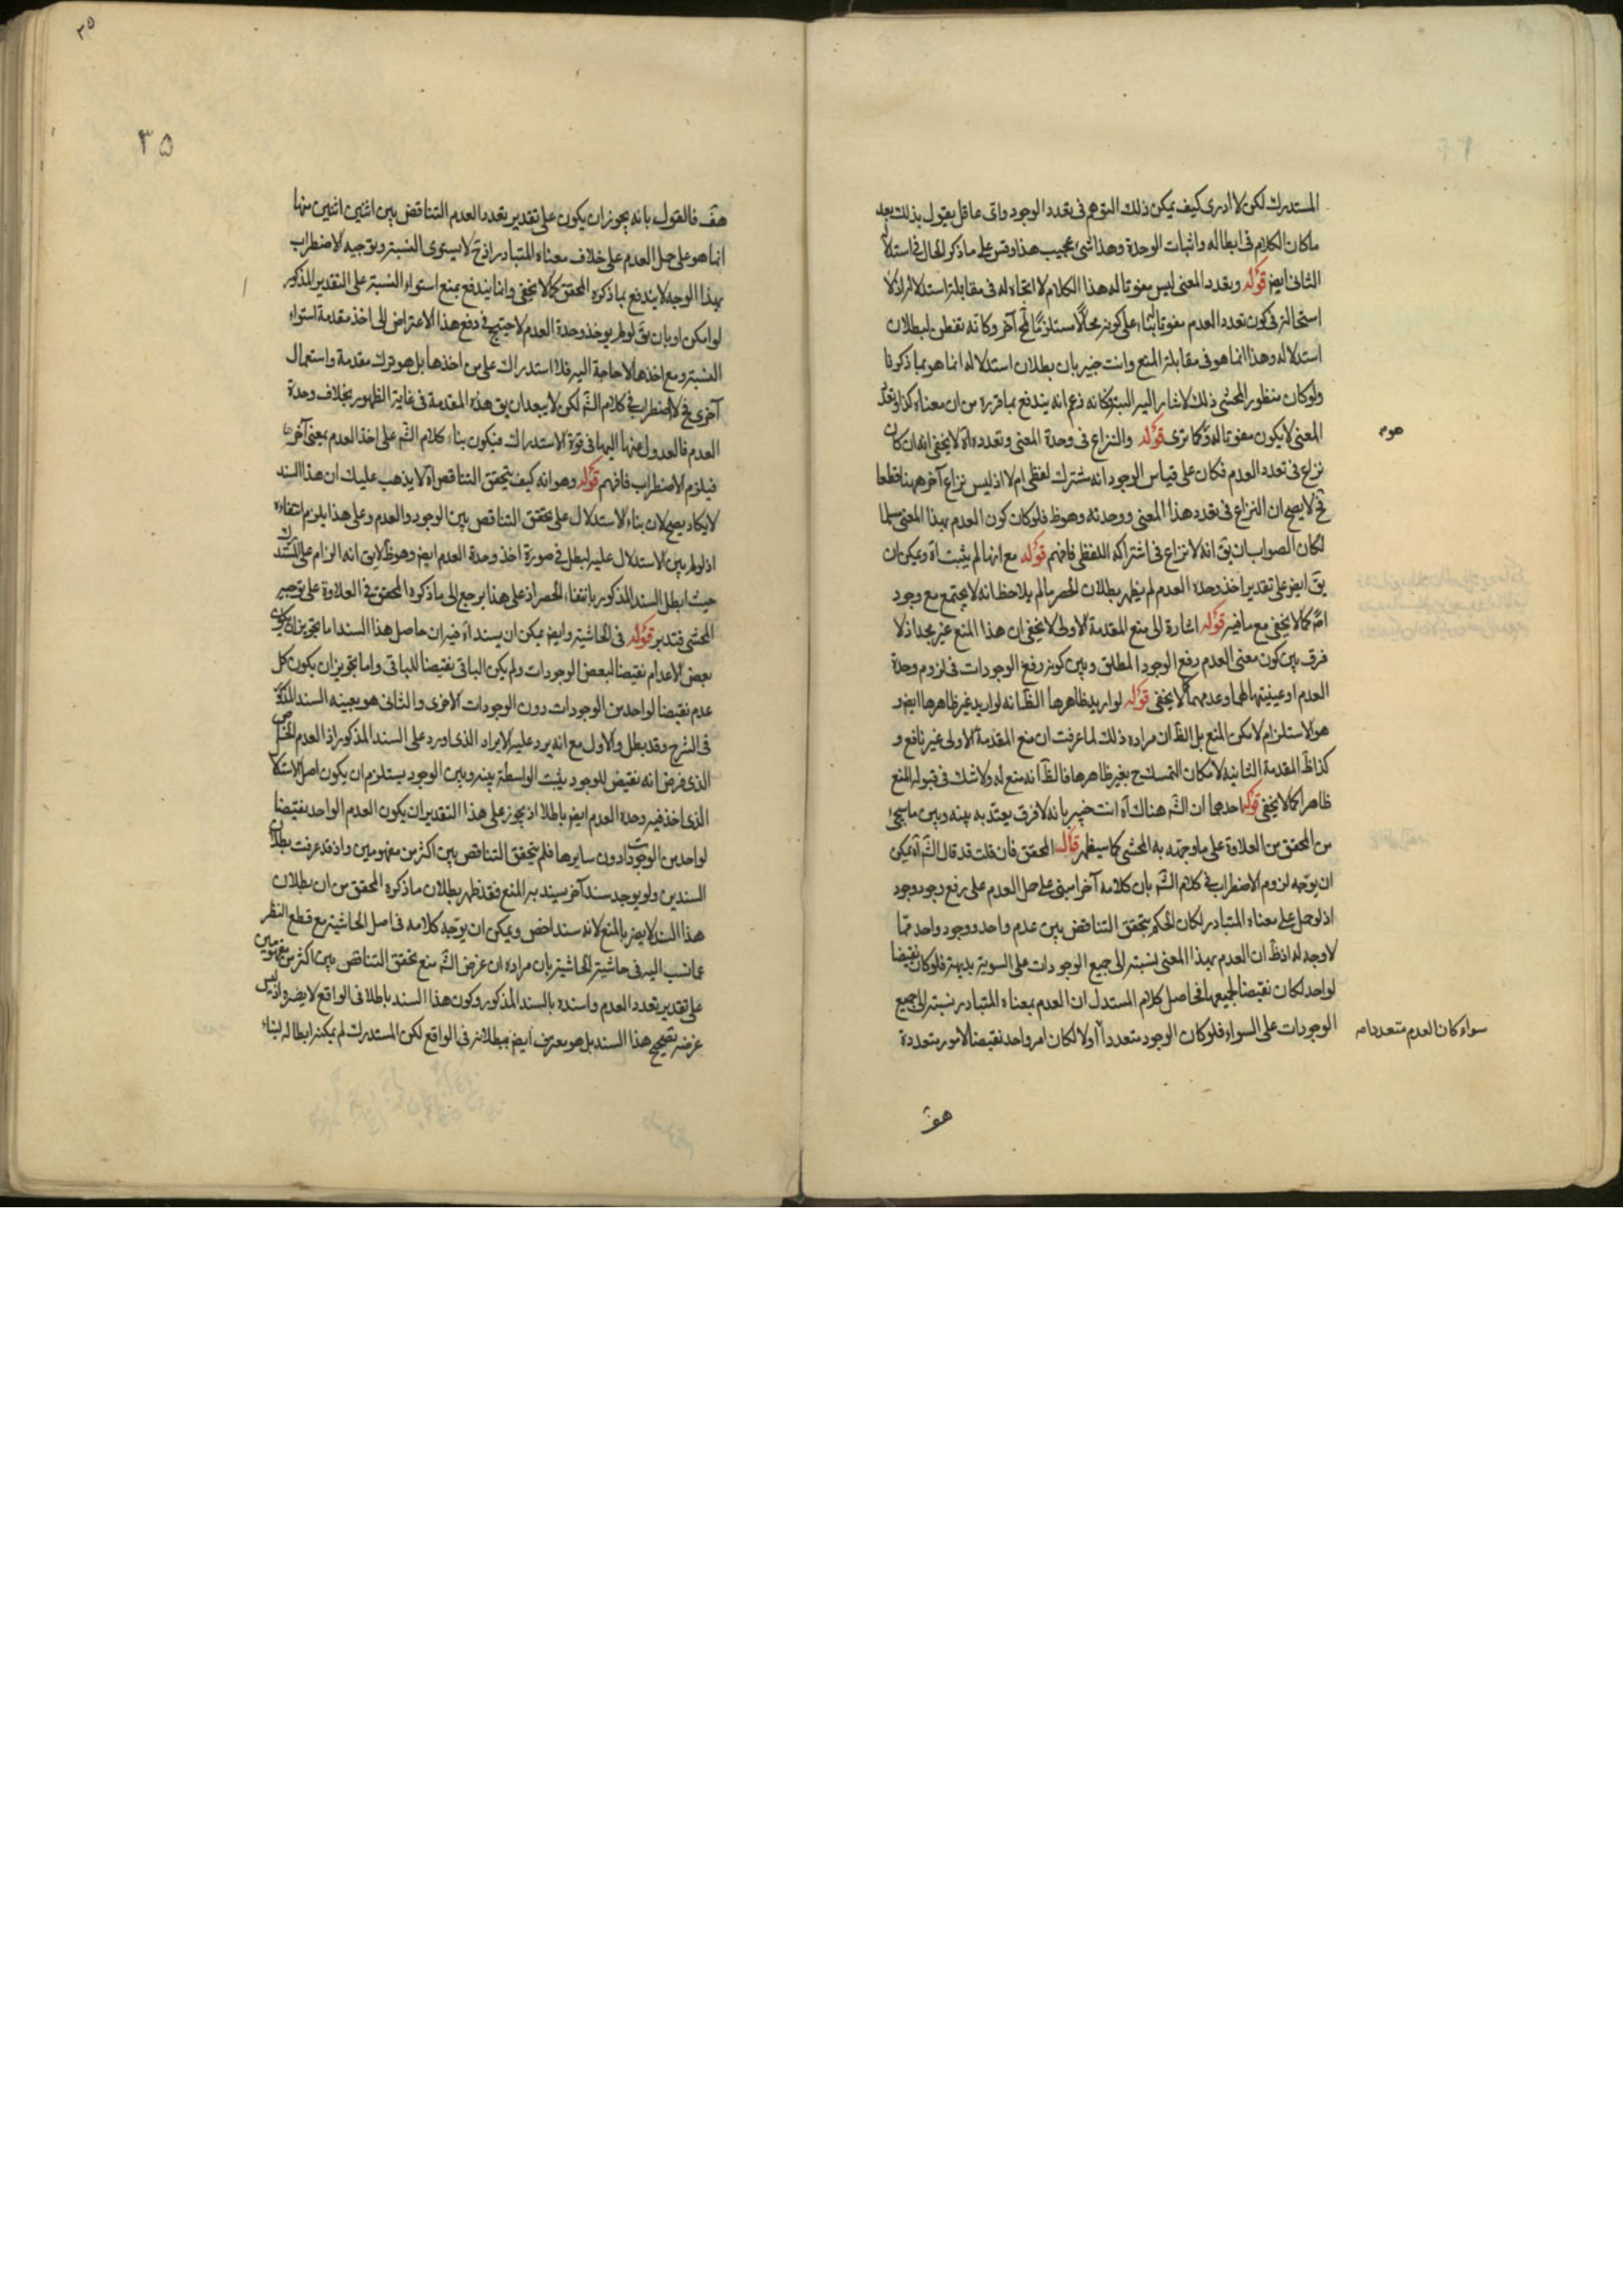 المستدرك لكن لا ادرى كيف يمكن ذلك التوهم فى تعدد الوجود واى عاقل يقول بذلك بعد
ماكان الكلام فى ابطاله واثبات الوحدة وهذا شئ عجيب هذا وقس على ما ذكر الحال فى استدلا
الثانى ايض قوله وتعدد المعنى ليس مفوتا له هذا الكلام لا اتجاه له فى مقابلة استدلال اذ لا
استحالة فى كون تعدد العدم مفوتا بناء على كونه محالا مستلزما لمح آخر وكانه تفطن لبطلان
استدلاله وهذا انما هو فى مقابلة المنع وانت خبير بان بطلان استدلاله انما هو بما ذكرنا
ولو كان منظور المحشى ذلك لاشار اليه البتة وكانه زعم انه يندفع بما قرره من ان معناه كذا وتعدد
المعنى لا يكون مفوتا له وكما ترى قوله والنزاع فى وحدة المعنى وتعدده آه لا يخفى انه ان كان
نزاع فى تعدد العدم فكان على قياس الوجود انه مشترك لفظى ام لا اذ ليس نزاع آخر ههنا قطعا
فح لا يصح ان النزاع فى تعدد هذا المعنى ووحدته وهو ظ فلو كان كون العدم بهذا المعنى مسلما
لكان الصواب ان يق انه لا نزاع فى اشتراكه اللفظى فافهم قوله مع انها لم يثبت آه ويمكن ان
يق ايض على تقدير اخذ وحدة العدم لم يظهر بطلان الحصر ما لم يلاحظ انه لا يجتمع مع وجود
اصلا كما لا يخفى مع ما فيه قوله اشارة الى منع المقدمة الاولى لا يخفى ان هذا المنع غير مجد اذ لا
فرق بين كون معنى العدم رفع الوجود المطلق وبين كونه رفع الوجودات فى لزوم وحدة
العدم او عينيتها لهما وعدمهما كما لا يخفى قوله لو اريد ظاهرها الظ انه لو اريد غير ظاهرها ايض و
هو الاستلزام لامكن المنع بل الظ ان مراده ذلك لما عرفت ان منع المقدمة الاولى غير نافع و
كذا ظ المقدمة الثانية لامكان التمسك ح بغير ظاهرها فالظ انه منع له ولا شك فى قبوله المنع
ظاهرا كما لا يخفى قوله احدهما ان الش هناك آه انت خبير بانه لا فرق يعتد به بينه وبين ما سيجئ
من المحقق من العلاوة على ما وجهه به المحشى كما سيظهر قال المحقق فان قلت قد قال الش آه يمكن
ان يوجه لزوم الاضطراب فى كلام الش بان كلامه آخرا مبنى على حمل العدم على رفع وجود وجود
اذ لو حمل على معناه المتبادر لكان الحكم بتحقق التناقض بين عدم واحد ووجود واحد مما
لا وجه له اذ ظ ان العدم بهذا المعنى نسبته الى جميع الوجودات على السوية بديهة فلو كان نقيضا
لواحد لكان نقيضا لجميعها فحاصل كلام المستدل ان العدم بمعناه المتبادر نسبته الى جميع
الوجودات على السواء فلو كان الوجود متعددا اولا لكان امر واحد نقيضا لامور متعددة
سواء كان العدم متعددا م
هف
٣٥
٣٥
هف فالقول بانه يجوز ان يكون على تقدير تعدد العدم التناقض بين اثنين اثنين منها
انما هو على حمل العدم على خلاف معناه المتبادر اذ ح لا يستوى النسبة وتوجيه الاضطراب
بهذا الوجه لا يندفع بما ذكره المحقق كما لا يخفى وانما يندفع بمنع استواء النسبة على التقدير المذكور
لو امكن او بان يق لو لم يوخذ وحدة العدم لاحتيج فى دفع هذا الاعتراض الى اخذ مقدمة استواء
النسبة ومع اخذها لا حاجة اليه فلا استدراك على من اخذها بل هو ترك مقدمة واستعمال
آخرى فح لا اضطراب فى كلام الش لكن لا يبعد ان يق هذه المقدمة فى غاية الظهور بخلاف وحدة
العدم فالعدول عنها اليها فى قوة الاستدراك فيكون بناء كلام الش على اخذ العدم بمعنى آخر
فيلزم الاضطراب فافهم قوله وهو انه كيف يتحقق التناقض آه لا يذهب عليك ان هذا السند
لا يكاد يصح لان بناء الاستدلال على تحقق التناقض بين الوجود والعدم وعلى هذا يلزم انتفاءه
اذ لو لم يبن الاستدلال عليه لبطل فى صورة اخذ وحدة العدم ايض وهو ظ لا يق انه الزام على المستدرك
حيث ابطل السند المذكور بانتفاء الحصر اذ على هذا يرجع الى ما ذكره المحقق فى العلاوة على توجيه
المحشى فتدبر قوله فى الحاشية وايض يمكن ان يسند آه فيه ان حاصل هذا السند اما تجويز ان يكون
بعض الاعدام نقيضا لبعض الوجودات ولم يكن الباقى نقيضا للباقى واما تجويز ان يكون كل
عدم نقيضا لواحد من الوجودات دون الوجودات الاخرى والثانى هو بعينه السند المذكور
فى الشرح وقد بطل والاول مع انه يرد عليه الايراد الذى اورد على السند المذكور اذ العدم الخاص
الذى فرض انه نقيض للوجود يثبت الواسطة بينه وبين الوجود يستلزم ان يكون اصل الاستدلال
الذى اخذ فيه وحدة العدم ايض باطلا اذ يجوز على هذا التقدير ان يكون العدم الواحد نقيضا
لواحد من الوجودات دون سايرها فلم يتحقق التناقض بين اكثر من مفهومين واذ قد عرفت بطلان
السندين ولو يوجد سند آخر يسند به المنع فقد ظهر بطلان ما ذكره المحقق من ان بطلان
هذا السند لا يضر بالمنع لانه سند اخص ويمكن ان يوجه كلامه فى اصل الحاشية مع قطع النظر
عما نسب اليه فى حاشية الحاشية بان مراده ان غرض الش منع تحقق التناقض بين اكثر من مفهومين
على تقدير تعدد العدم واسنده بالسند المذكور وكون هذا السند باطلا فى الواقع لا يضر واذ ليس
غرضه تصحيح هذا السند بل هو معترف ايض ببطلانه فى الواقع لكن المستدرك لم يمكنه ابطاله لبناء